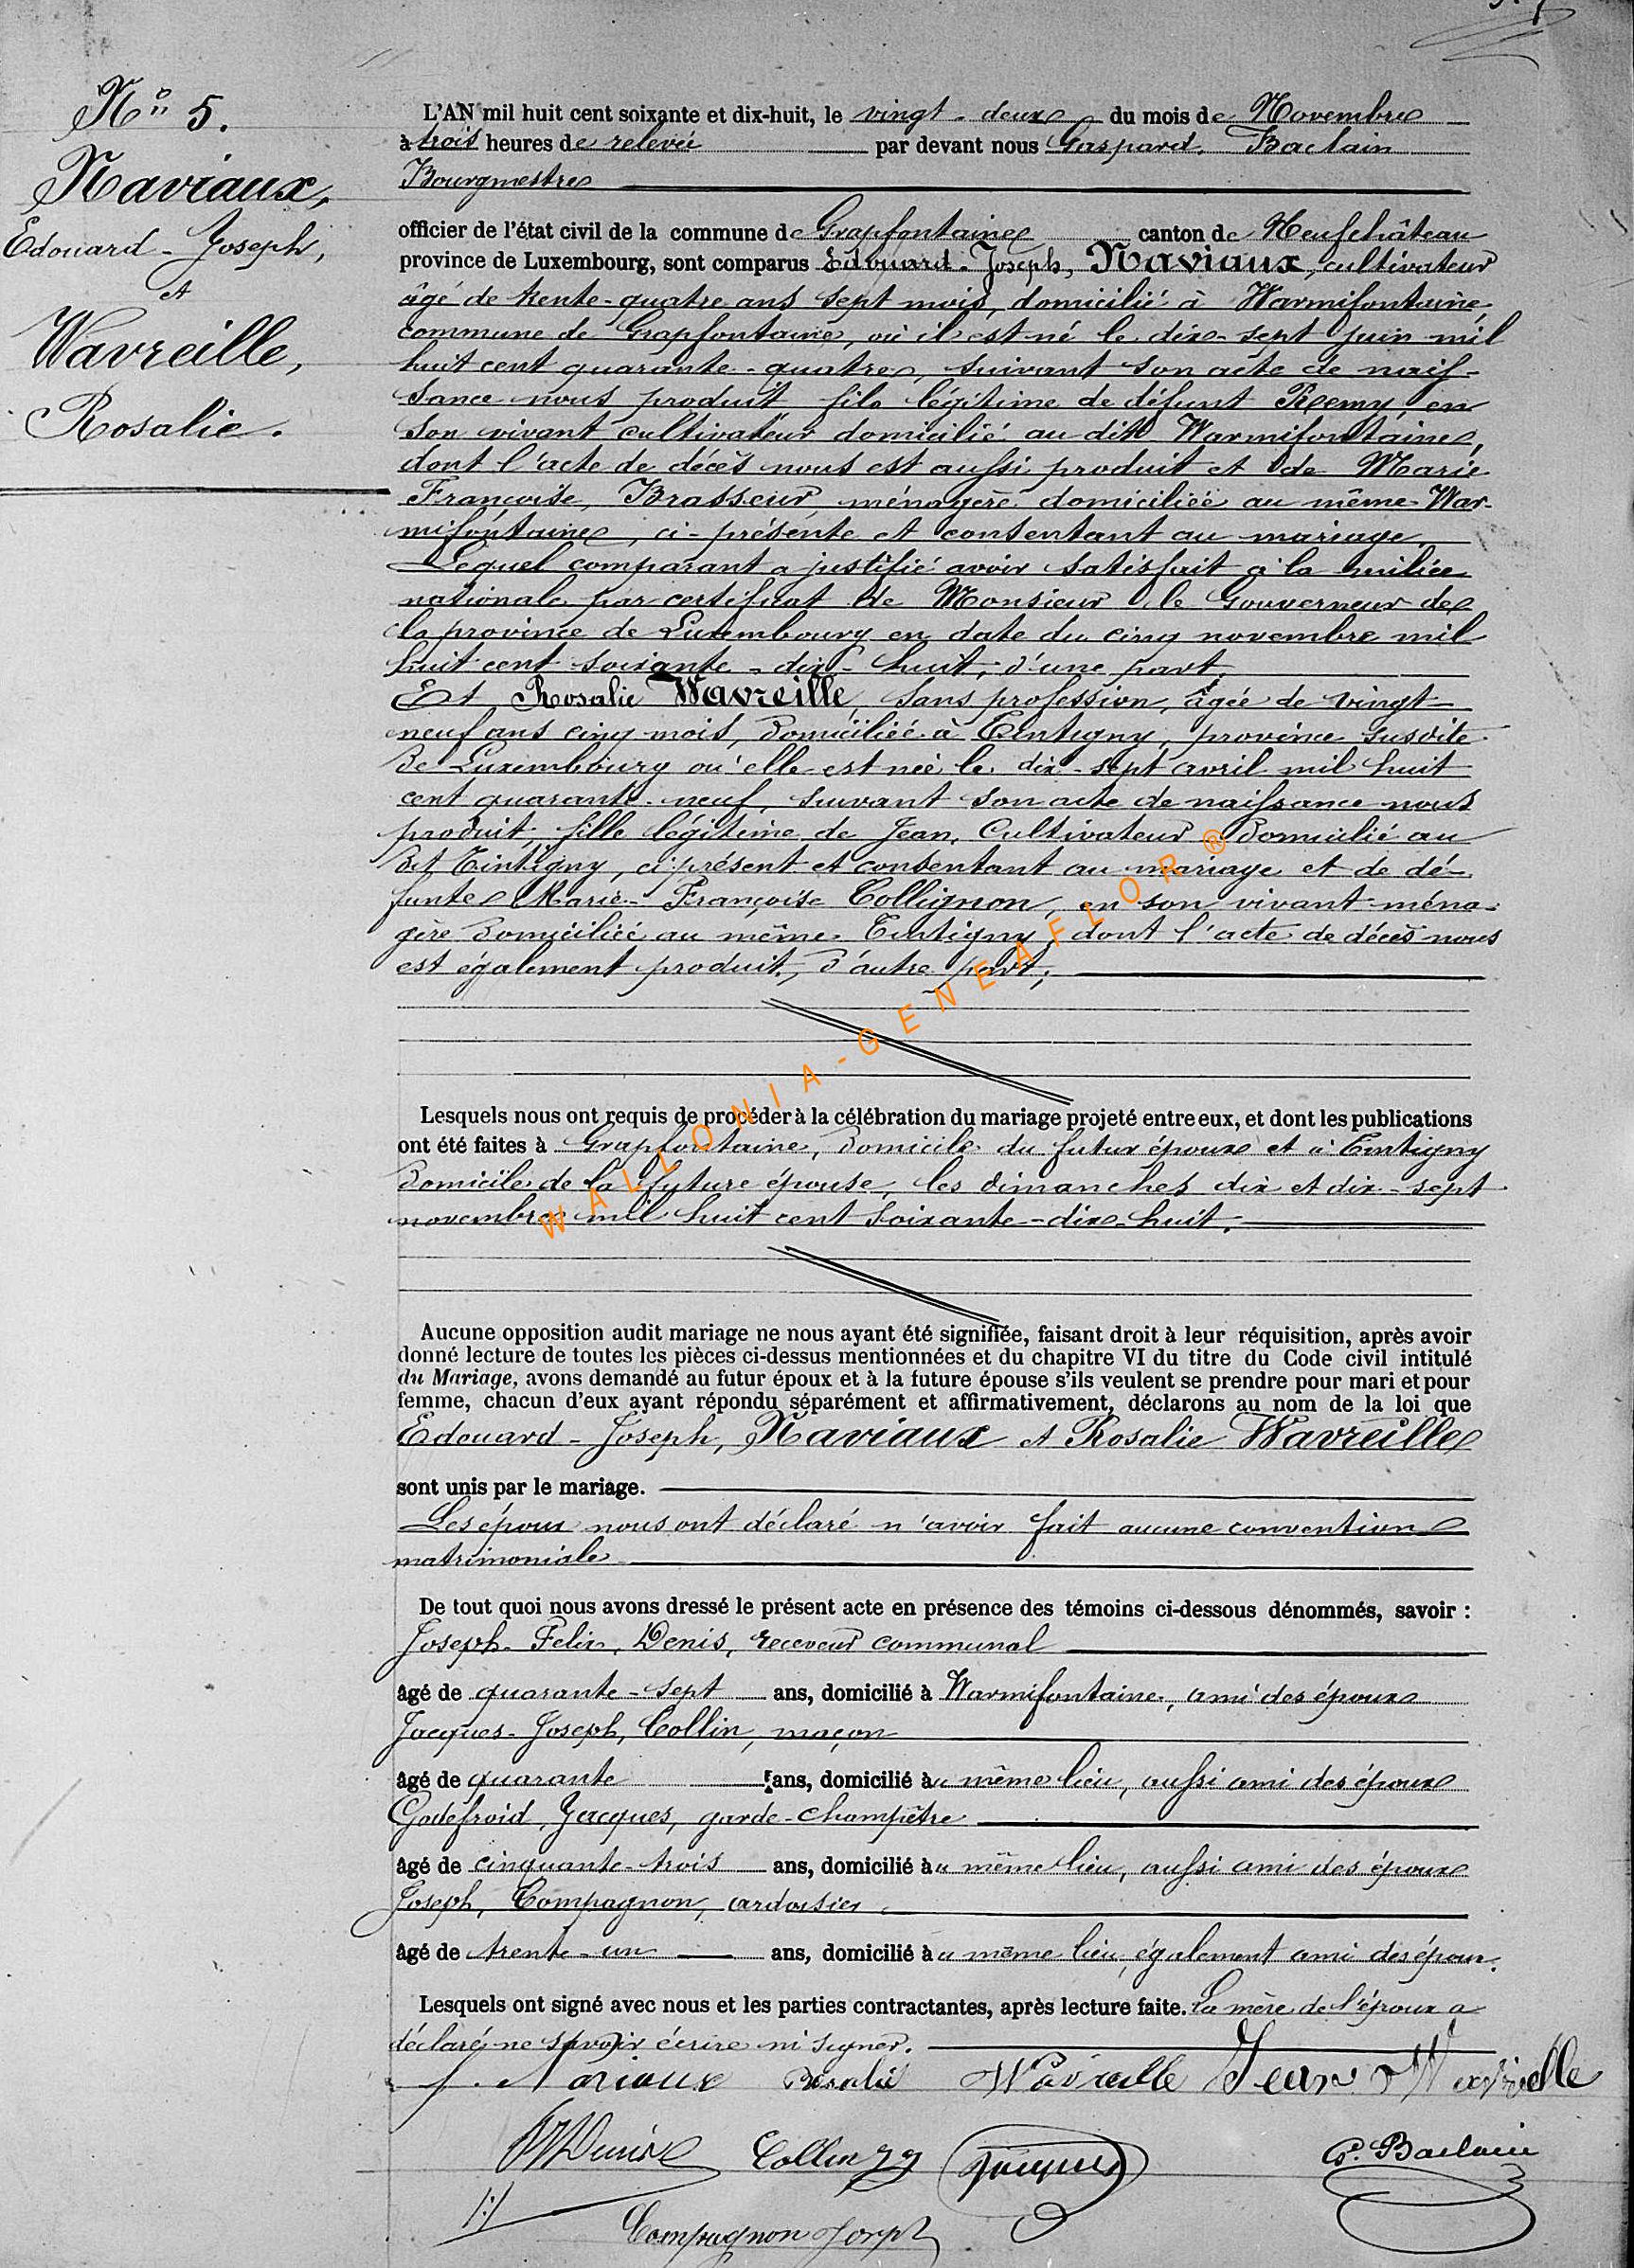 N° 5.
Naviaux,
Edouard-Joseph,
et
Wavreille,
Rosalie.
L'AN mil huit cent soixante et dix-huit, le vingt-deux du mois de Novembre
à trois heures de relevée par devant nous Gaspard, Baclain
Bourgmestre
officier de l'état civil de la commune de Grapfontaine canton de Neufchâteau
province de Luxembourg, sont comparus Edouard-Joseph, Naviaux, cultivateur
âgé de trente-quatre ans sept mois, domicilié à Warmifontaine,
commune de Grapfontaine, où il est né le dix-sept juin mil
huit cent quarante-quatre, suivant son acte de nais-
sance nous produit fils légitime de défunt Remy, en
son vivant cultivateur domicilié au dit Warmifontaine,
dont l'acte de décès nous est aussi produit et de Marie
Françoise, Brasseur, ménagère domiciliée au même War-
mifontaine, ci-présente et consentant au mariage
Lequel comparant a justifié avoir satisfait à la milice
nationale par certificat de Monsieur le Gouverneur de
la province de Luxembourg en date du cinq novembre mil
huit cent soixante-dix-huit; d'une part.
Et Rosalie Wavreille, sans profession, âgée de vingt-
neuf ans cinq mois, domiciliée à Tintigny, province susdite
de Luxembourg où elle est née le dix-sept avril mil huit
cent quarante-neuf, suivant son acte de naissance nous
produit, fille légitime de Jean, Cultivateur domicilié au
dit Tintigny, ci-présent et consentant au mariage et de dé-
funte Marie-Françoise Collignon, en son vivant ména-
gère domiciliée au même Tintigny, dont l'acte de décès nous
est également produit, d'autre part;
WALLONIA-GENEAFLOR®
Lesquels nous ont requis de procéder à la célébration du mariage projeté entre eux, et dont les publications
ont été faites à Grapfontaine, domicile du futur époux et à Tintigny
domicile de la future épouse, les dimanches dix et dix-sept
novembre mil huit cent soixante-dix-huit.
Aucune opposition audit mariage ne nous ayant été signifiée, faisant droit à leur réquisition, après avoir
donné lecture de toutes les pièces ci-dessus mentionnées et du chapitre VI du titre du Code civil intitulé
du Mariage, avons demandé au futur époux et à la future épouse s'ils veulent se prendre pour mari et pour
femme, chacun d'eux ayant répondu séparément et affirmativement, déclarons au nom de la loi que
Edouard-Joseph, Naviaux et Rosalie Wavreille
sont unis par le mariage.
Les époux nous ont déclaré n'avoir fait aucune convention
matrimoniale
De tout quoi nous avons dressé le présent acte en présence des témoins ci-dessous dénommés, savoir :
Joseph-Felix, Denis, receveur communal
âgé de quarante-sept ans, domicilié à Warmifontaine, ami des époux
Jacques-Joseph, Collin, maçon
âgé de quarante ans, domicilié au même lieu, aussi ami des époux
Godefroid, Jacques, garde-champêtre
âgé de cinquante-trois ans, domicilié au même lieu, aussi ami des époux
Joseph, Compagnon, ardoisier
âgé de trente-un ans, domicilié au même lieu, également ami des époux.
Lesquels ont signé avec nous et les parties contractantes, après lecture faite. La mère de l'époux a
déclaré ne savoir écrire ni signer.
J. Naviaux Rosalie Wavreille Jean Wavreille
Denis Collin JJ Jacques G. Baclain
Compagnon Joseph